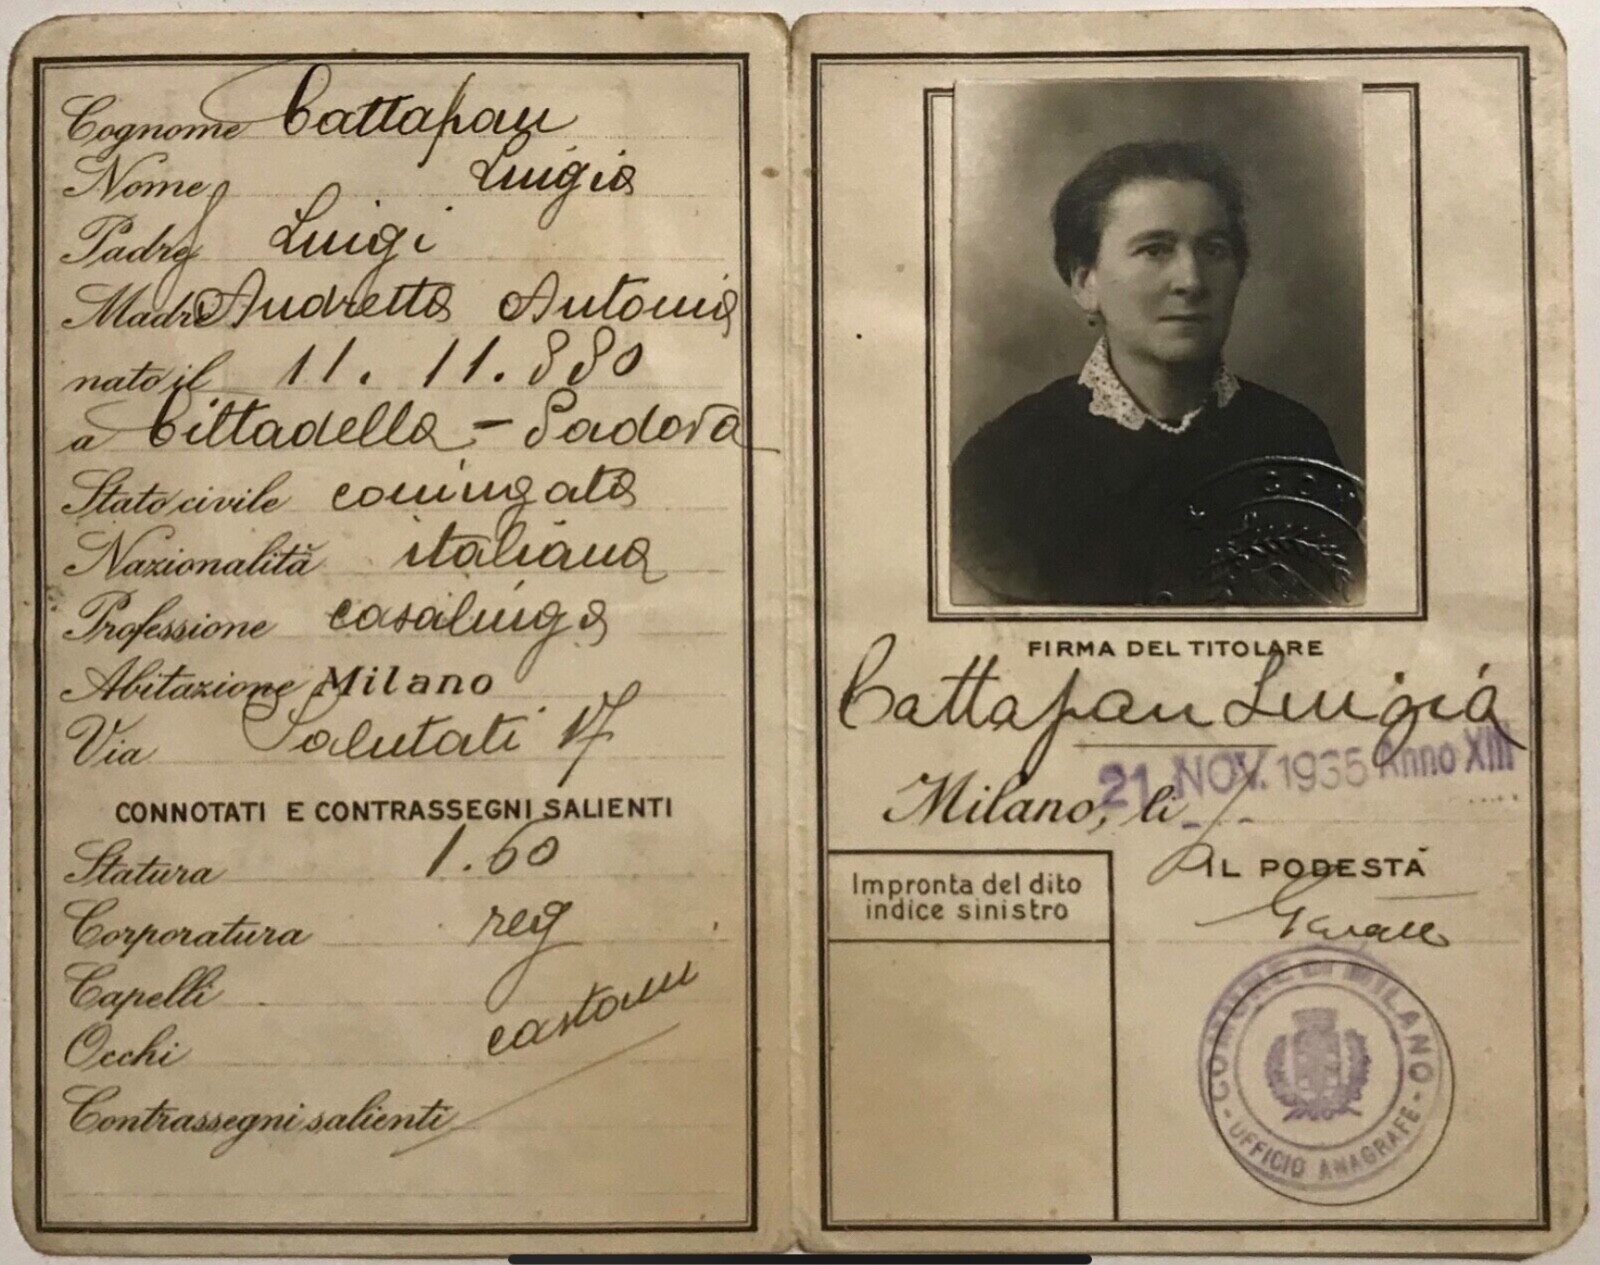 Cognome Cattapan
Nome Luigia
Padre Luigi
Madre Andretta Antonia
nato il 11.11.880
a Cittadella - Padova
Stato civile coniugata
Nazionalità italiana
Professione casalinga
Abitazione Milano
Via Salutati 17
CONNOTATI E CONTRASSEGNI SALIENTI
Statura 1.60
Corporatura reg
Capelli
castani
Occhi
Contrassegni salienti
FIRMA DEL TITOLARE
Cattapan Luigia
Milano, li 21 NOV. 1935 Anno XIII
IL PODESTÀ
Impronta del dito
indice sinistro
COMUNE DI MILANO
- UFFICIO ANAGRAFE -